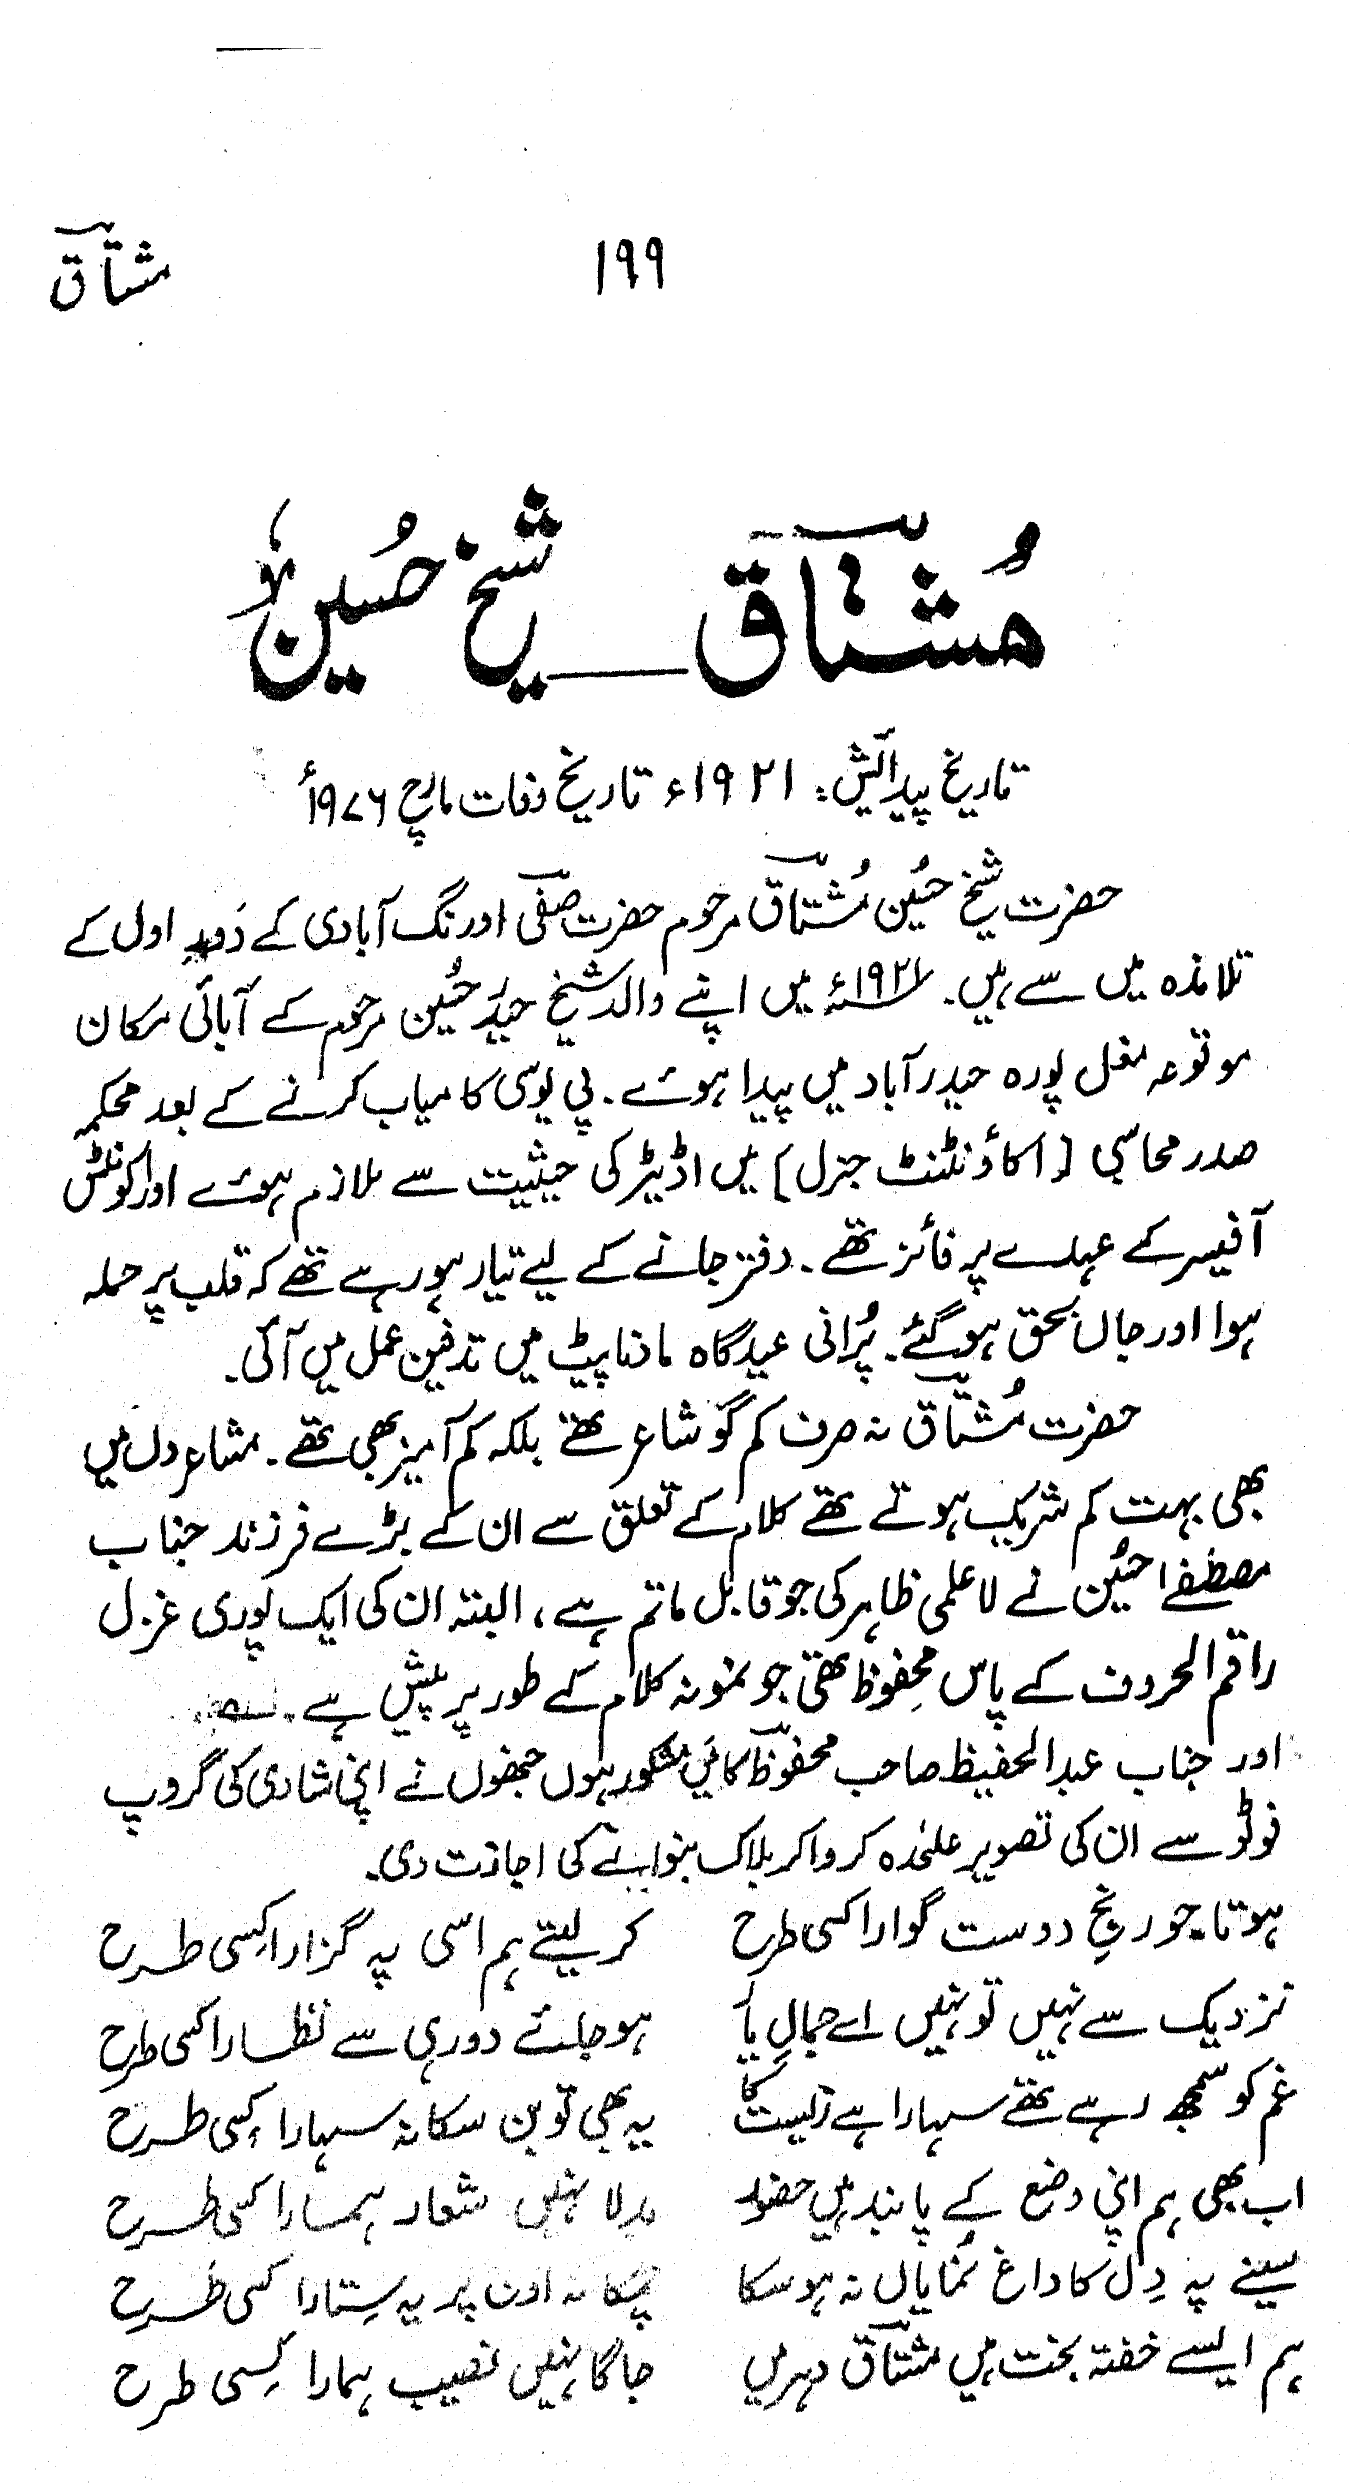 مشتاق
۱۹۹
مُشتاق ــ شیخ حُسین
تاریخ پیدائش: ۱۹۲۱ء تاریخ وفات مارچ ۱۹۷۶ء
حضرت شیخ حُسین مُشتاق مرحوم حضرت صفی اورنگ آبادی کے دَورِ اول کے
تلامذہ میں سے ہیں۔ ۱۹۲۱ء میں اپنے والد شیخ حیدر حُسین مرحوم کے آبائی مکان
موقوعہ مغل پورہ حیدرآباد میں پیدا ہوئے۔ پی یوسی کامیاب کرنے کے بعد محکمہ
صدر محاسبی [اکاؤنٹنٹ جنرل] میں اڈیٹر کی حیثیت سے ملازم ہوئے اور اکونٹس
آفیسر کے عہدے پر فائز تھے۔ دفتر جانے کے لیے تیار ہو رہے تھے کہ قلب پر حملہ
ہوا اور جاں بحق ہوگئے۔ پُرانی عیدگاہ مادناپیٹ میں تدفین عمل میں آئی۔
حضرت مُشتاق نہ صرف کم گو شاعر تھے بلکہ کم آمیز بھی تھے۔ مشاعروں میں
بھی بہت کم شریک ہوتے تھے کلام کے تعلق سے ان کے بڑے فرزند جناب
مصطفےٰ حُسین نے لاعلمی ظاہر کی جو قابل ماتم ہے، البتہ ان کی ایک پوری غزل
راقم الحروف کے پاس محفوظ تھی جو نمونہ کلام کے طور پر پیش ہے۔
اور جناب عبدالحفیظ صاحب محفوظ کا میں مشکور ہوں جنھوں نے اپنی شادی کی گروپ
فوٹو سے ان کی تصویر علٰحدہ کرواکر بلاک بنوانے کی اجازت دی۔
ہوتا جو رنجِ دوست گوارا کسی طرح کرلیتے ہم اسی پہ گزارا کسی طرح
نزدیک سے نہیں تو نہیں اے جمالِ یار ہوجائے دور ہی سے نظارا کسی طرح
غم کو سمجھ رہے تھے سہارا ہے زیست کا یہ بھی تو بن سکا نہ سہارا کسی طرح
اب بھی ہم اپنی وضع کے پابند ہیں حضور بدلا نہیں شعار ہمارا کسی طرح
سینے پہ دِل کا داغ نمایاں نہ ہوسکا چمکا نہ اوج پر یہ سِتارا کسی طرح
ہم ایسے خفتہ بخت ہیں مشتاق دہر میں جاگا نہیں نصیب ہمارا کِسی طرح